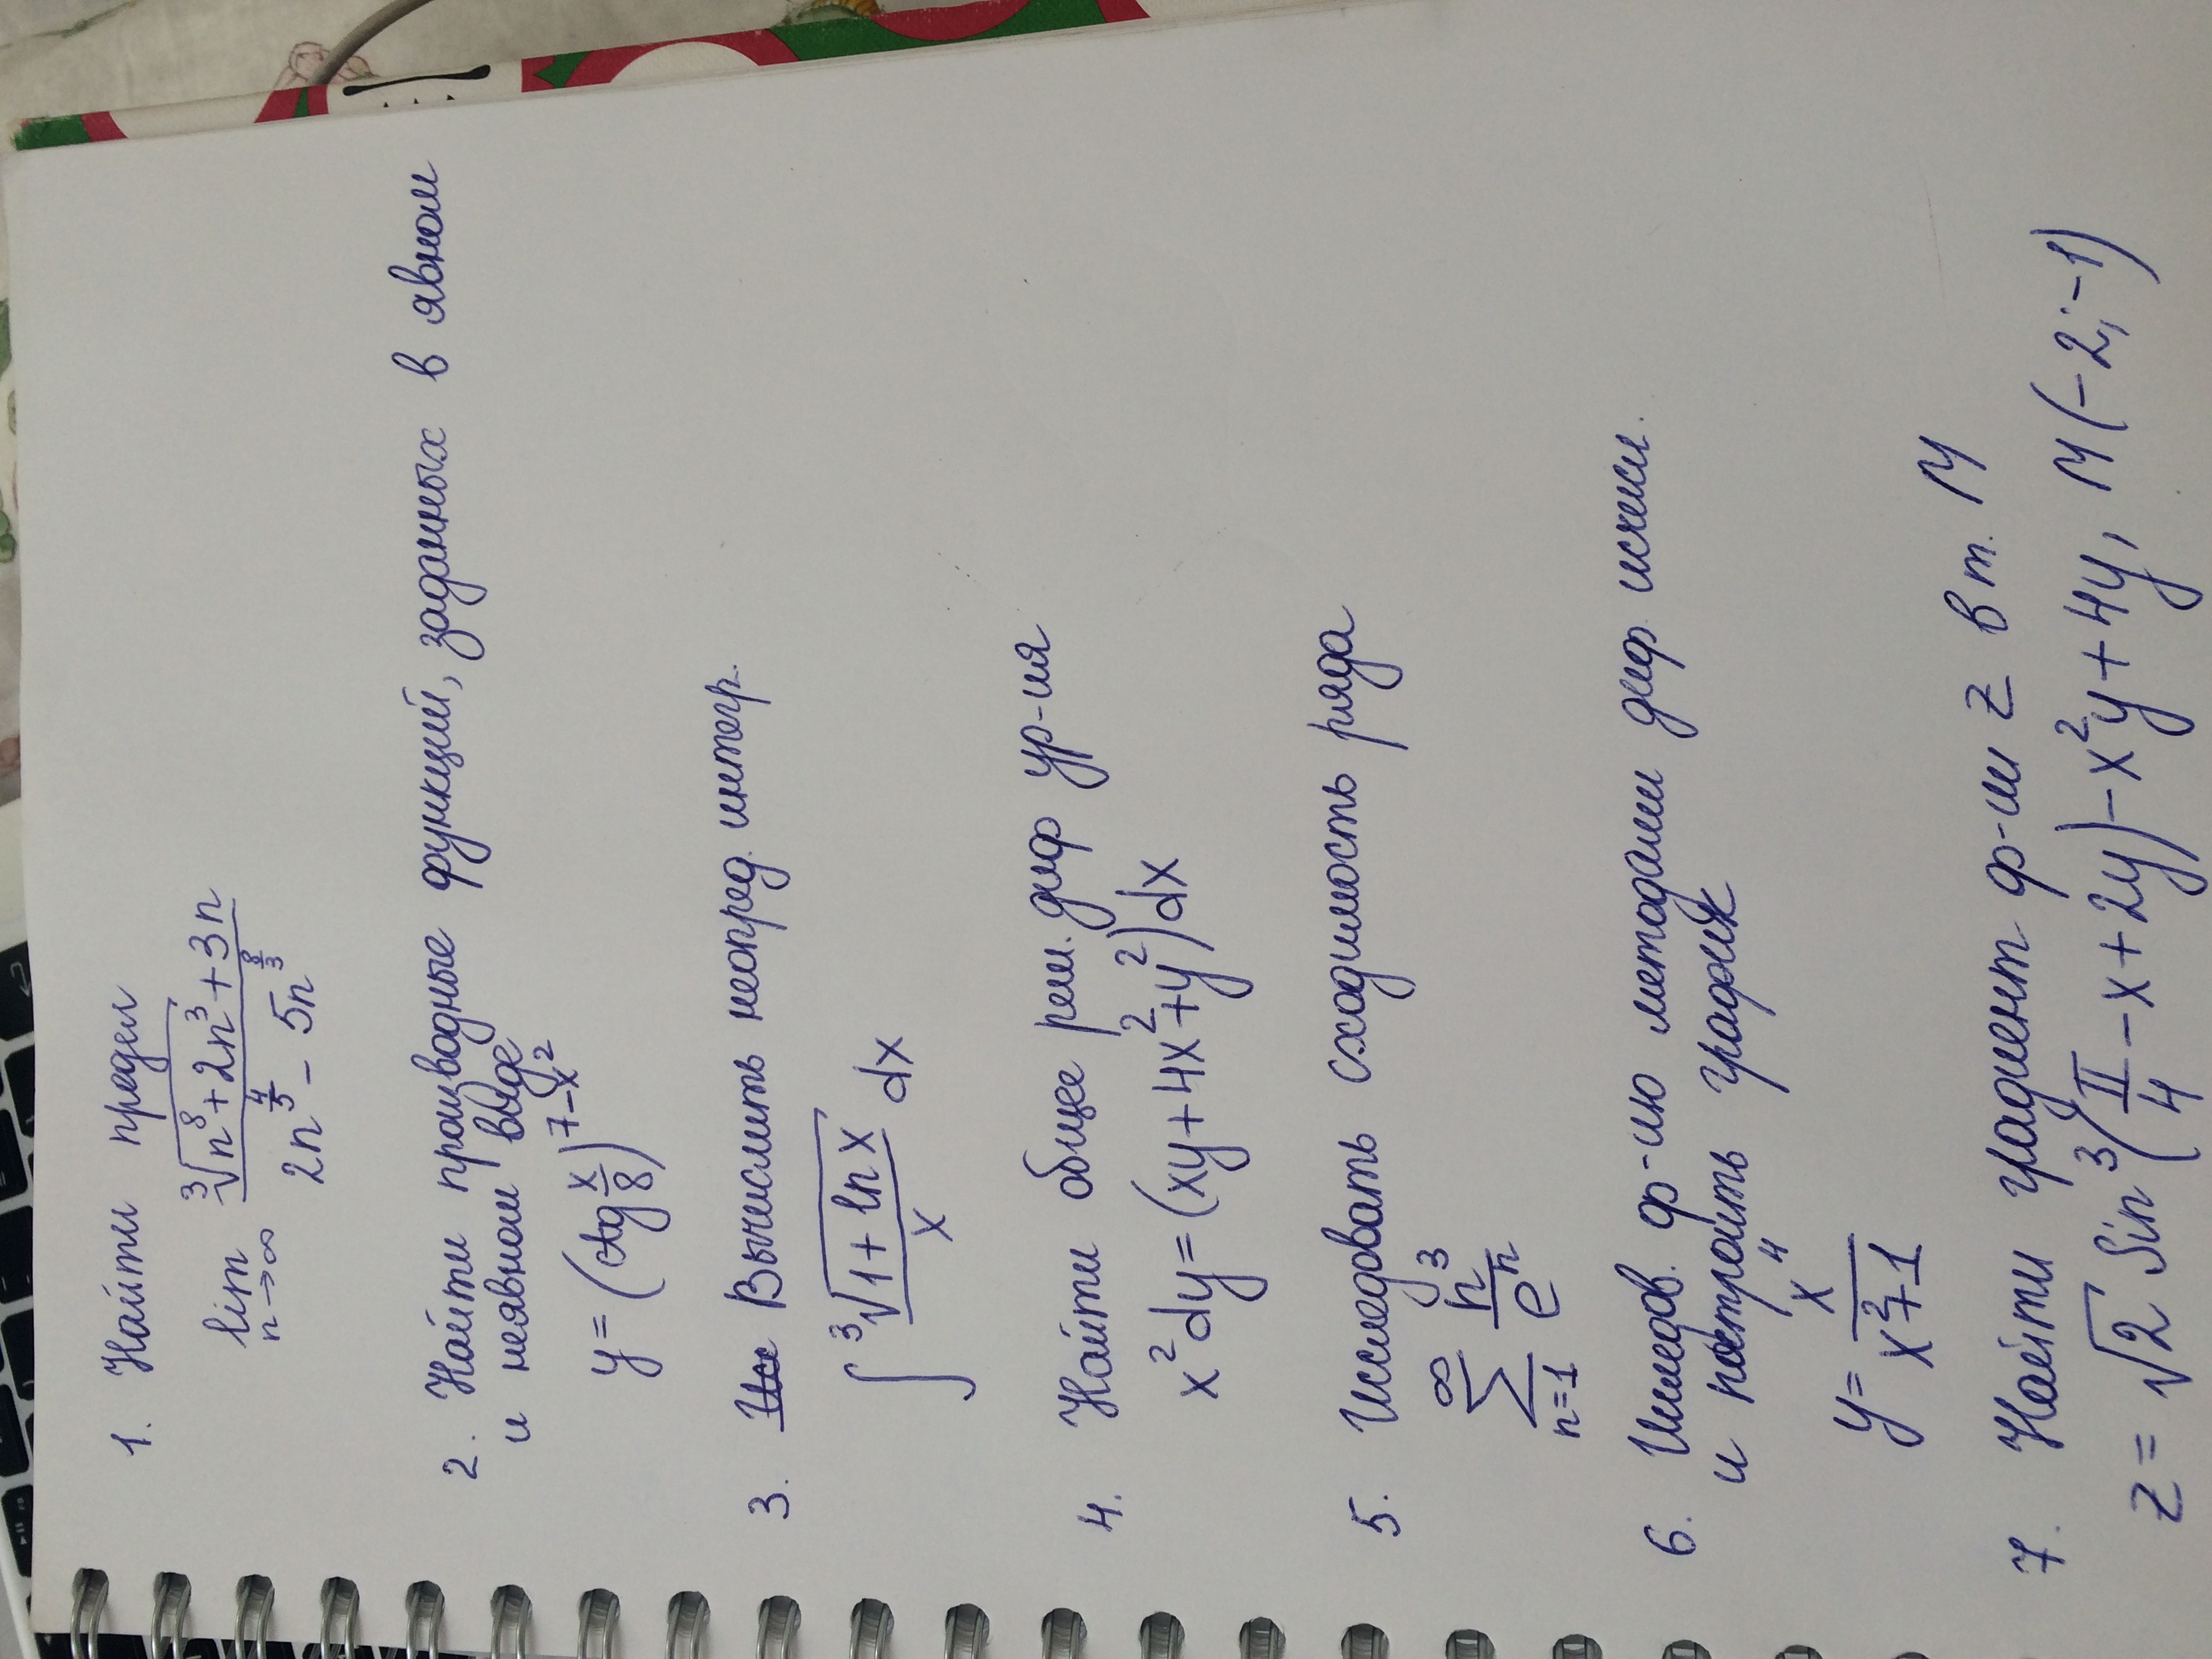 1. Найти предел
lim n→∞ (∛(n⁸+2n³)+3n)/(2n^(4/5) - 5n^(8/3))
2. Найти производные функций, заданных в явном
и неявном виде
y=(ctg x/8)^(7-x²)
3. Вычислить неопред. интегр.
∫ ∛(1+ln x)/x dx
4. Найти общее реш. диф ур-ия
x²dy=(xy+4x²+y²)dx
5. Исследовать сходимость ряда
∑_(n=1)^∞ n³/eⁿ
6. Исследов. ф-ию методами диф исчисл.
и построить график
y= x⁴/(x²+1)
7. Найти градиент ф-ии z в т. М
z=√2 Sin³(π/4-x+2y)-x²y+4y, М(-2;-1)